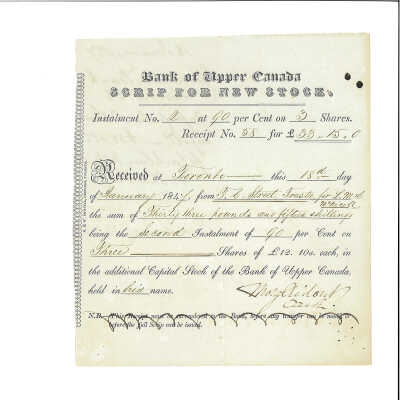 Bank of Upper Canada
SCRIP FOR NEW STOCK.
Instalment No. 2 at 90 per Cent on 3 Shares.
Receipt No. 58 for £ 33-15-0
Received at Toronto this 18th day
of January 1847, from T. C. Street Trustee for
the sum of Thirty three pounds and fifteen shillings
being the second Instalment of 90 per Cent on
Three Shares of £12. 10s. each, in
the additional Capital Stock of the Bank of Upper Canada,
held in his name.
N.B. This receipt must be surrendered to the Bank, before any transfer can be made, or
before the full Scrip can be issued.